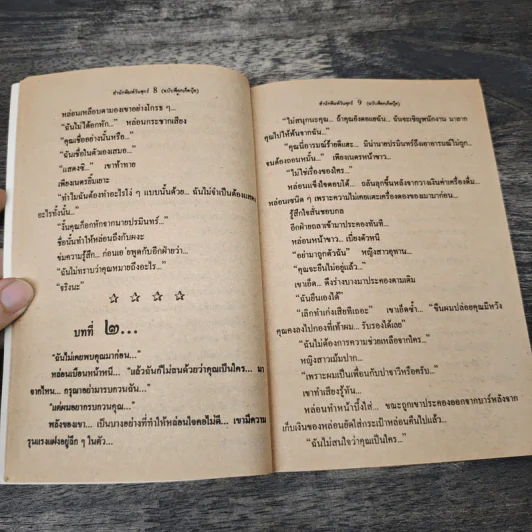 สำนักพิมพ์วันศุกร์ 8 (ฉบับพ็อกเก็ตบุ๊ค)
หล่อนเหลือบตามองเขาอย่างโกรธ ๆ...
"ฉันไม่ได้อกหัก..." หล่อนกระซากเสียง
"คุณเชื่ออย่างนั้นหรือ..."
"ฉันเชื่อในตัวเองเสมอ..."
"แสดงซิ..." เขาท้าทาย
เพียงเนตรยิ้มเยาะ
"ทำไมฉันต้องทำอะไรโง่ ๆ แบบนั้นด้วย.. ฉันไม่จำเป็นต้องแสดง
อะไรทั้งนั้น.."
"งั้นคุณก็อกหักจากนายปรมินทร์..."
ชื่อนั้นทำให้หล่อนอึ้งกับผงะ
ข่มความรู้สึก.. ก่อนเอ่ยพูดกับอีกฝ่ายว่า...
"ฉันไม่ทราบว่าคุณหมายถึงอะไร..."
"จริงนะ"
บทที่ ๒...
"ฉันไม่เคยพบคุณมาก่อน..."
หล่อนเบือนหน้าหนี... "แล้วฉันก็ไม่สนด้วยว่าคุณเป็นใคร... มา
จากไหน... กรุณาอย่ามารบกวนฉัน..."
"แต่ผมอยากรบกวนคุณ..."
พลังของเขา... เป็นบางอย่างที่ทำให้หล่อนใจคอไม่ดี... เขามีความ
รุนแรงแฝงอยู่ลึก ๆ ในตัว...
สำนักพิมพ์วันศุกร์ 9 (ฉบับพ็อกเก็ตบุ๊ค)
"ไม่สนุกนะคุณ.. ถ้าคุณยังตอแยฉัน.. ฉันจะเชิญพนักงาน มาลาก
คุณไปให้พ้นจากฉัน..."
"คุณนี่อารมณ์ร้ายดีแฮะ.. มิน่านายปรมินทร์ถึงเอาอารมณ์ไม่ถูก..
จนต้องถอนหมั้น..." เพียงเนตรหน้าขาว..
"ไม่ใช่เรื่องของใคร.."
หล่อนแข็งใจตอบได้... ถลันลุกขึ้นหลังจากวางเงินค่าเครื่องดื่ม..
หล่อนเซนิด ๆ เพราะความไม่เคยแตะเครื่องดองของเมามาก่อน..
รู้สึกใจสั่นชอบกล
อีกฝ่ายถลาเข้ามาประคองทันที...
หล่อนหน้าขาว.. เบี่ยงตัวหนี
"อย่ามาถูกตัวฉัน" หญิงสาวอุทาน...
"คุณจะยืนไม่อยู่แล้ว.."
เขาเอ็ด.. ดึงร่างบางมาประคองตามเดิม
"ฉันยืนเองได้"
"เลิกทำเก่งเสียทีเถอะ" เขาเอ็ดซ้ำ... "ขืนผมปล่อยคุณมีหวัง
คุณคงลงไปกองที่เท้าผม.. รับรองได้เลย"
"ฉันไม่ต้องการความช่วยเหลือจากใคร.."
หญิงสาวเม้มปาก...
"เพราะผมเป็นเพื่อนกับปาจารีหรือครับ..."
เขาทำเสียงรู้ทัน...
หล่อนทำหน้าบึ้งใส่... ขณะถูกเขาประคองออกจากบาร์หลังจาก
เก็บเงินของหล่อนยัดใส่กระเป๋าหล่อนคืนไปแล้ว...
"ฉันไม่สนใจว่าคุณเป็นใคร.."